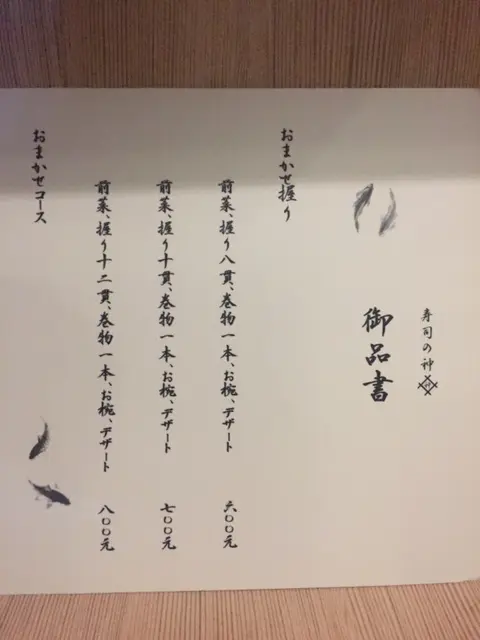 寿司の神
御品書
おまかせ握り
前菜、握り八貫、巻物一本、お椀、デザート 六〇〇元
前菜、握り十貫、巻物一本、お椀、デザート 七〇〇元
前菜、握り十二貫、巻物一本、お椀、デザート 八〇〇元
おまかせコース